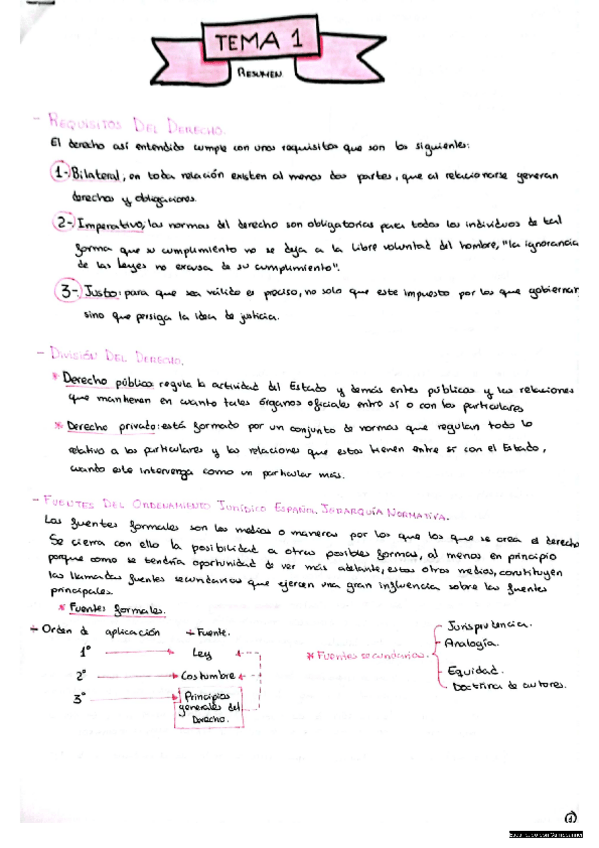 TEMA 1
RESUMEN
- REQUISITOS DEL DERECHO.
El derecho así entendido cumple con unos requisitos que son los siguientes:
1- Bilateral, en toda relación existen al menos dos partes, que al relacionarse generan
derechos y obligaciones.
2- Imperativo, las normas del derecho son obligatorias para todos los individuos de tal
forma que su cumplimiento no se deja a la libre voluntad del hombre, "la ignorancia
de las leyes no excusa de su cumplimiento".
3- Justo: para que sea válido es preciso, no solo que este impuesto por los que gobiernar
sino que persiga la idea de justicia.
- DIVISIÓN DEL DERECHO.
* Derecho público: regula la actividad del Estado y demás entes públicos y las relaciones
que mantienen en cuanto tales órganos oficiales entre sí o con los particulares
* Derecho privado: está formado por un conjunto de normas que regulan todo lo
relativo a los particulares y las relaciones que estos tienen entre sí con el Estado,
cuando este intervenga como un particular más.
- FUENTES DEL ORDENAMIENTO JURÍDICO ESPAÑOL, JERARQUÍA NORMATIVA.
Las fuentes formales son los medios o maneras por los que los que se crea el derecho
Se cierra con ello la posibilidad a otras posibles formas, al menos en principio
porque como se tendría oportunidad de ver más adelante, estos otros medios, constituyen
las llamadas fuentes secundarias que ejercen una gran influencia sobre las fuentes
principales.
* Fuentes formales.
+ Orden de aplicación + Fuente.
1º Ley
2º Costumbre
3º Principios
generales del
Derecho.
* Fuentes secundarias.
- Jurisprudencia.
- Analogía.
- Equidad.
- Doctrina de autores.
1